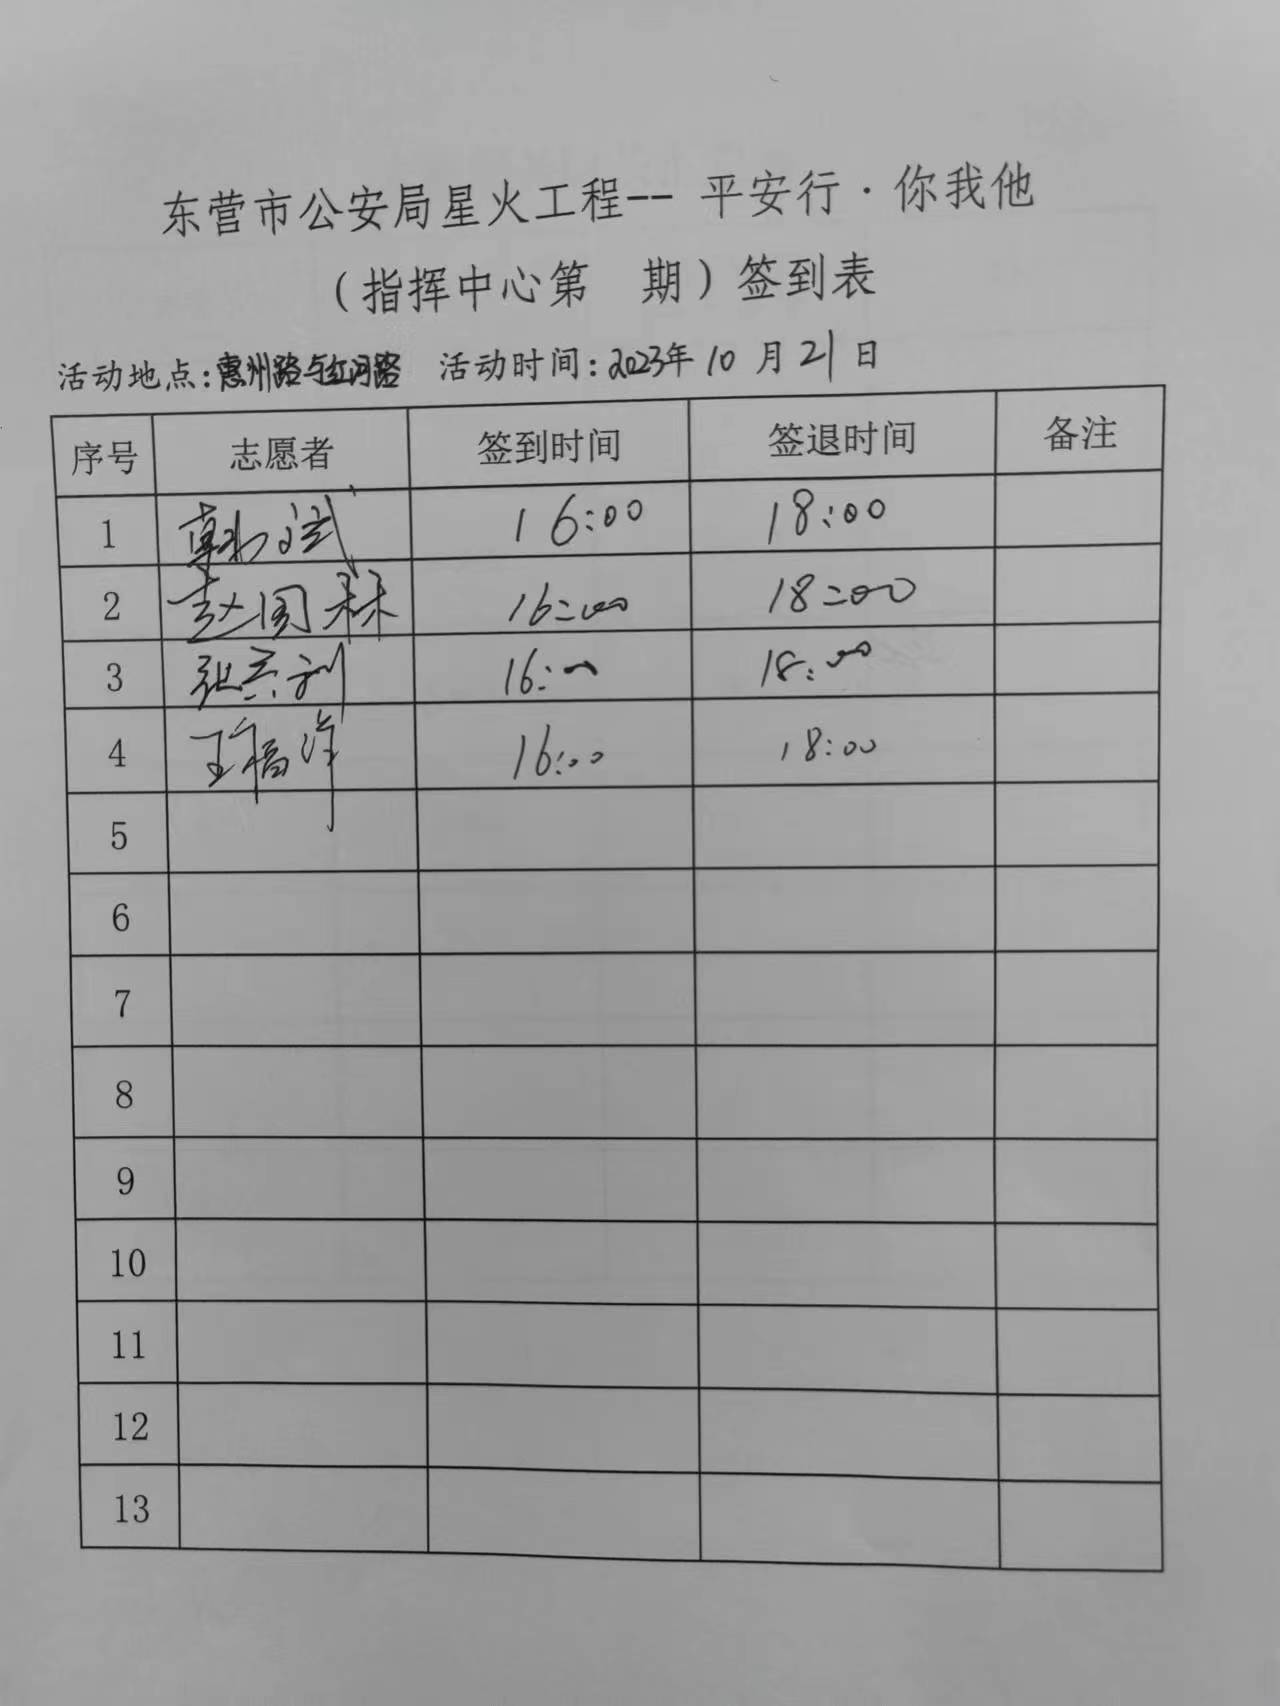 东营市公安局星火工程-- 平安行·你我他
（指挥中心第 期）签到表
活动地点：惠州路与红河路 活动时间：2023年 10 月 21 日
序号 志愿者 签到时间 签退时间 备注
1 16:00 18:00
2 赵国林 16:00 18:00
3 16:00 18:00
4 王福洋 16:00 18:00
5
6
7
8
9
10
11
12
13